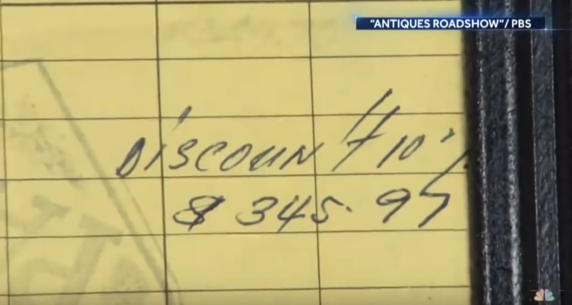 "ANTIQUES ROADSHOW"/ PBS
DISCOUNT 10%
$ 345.97